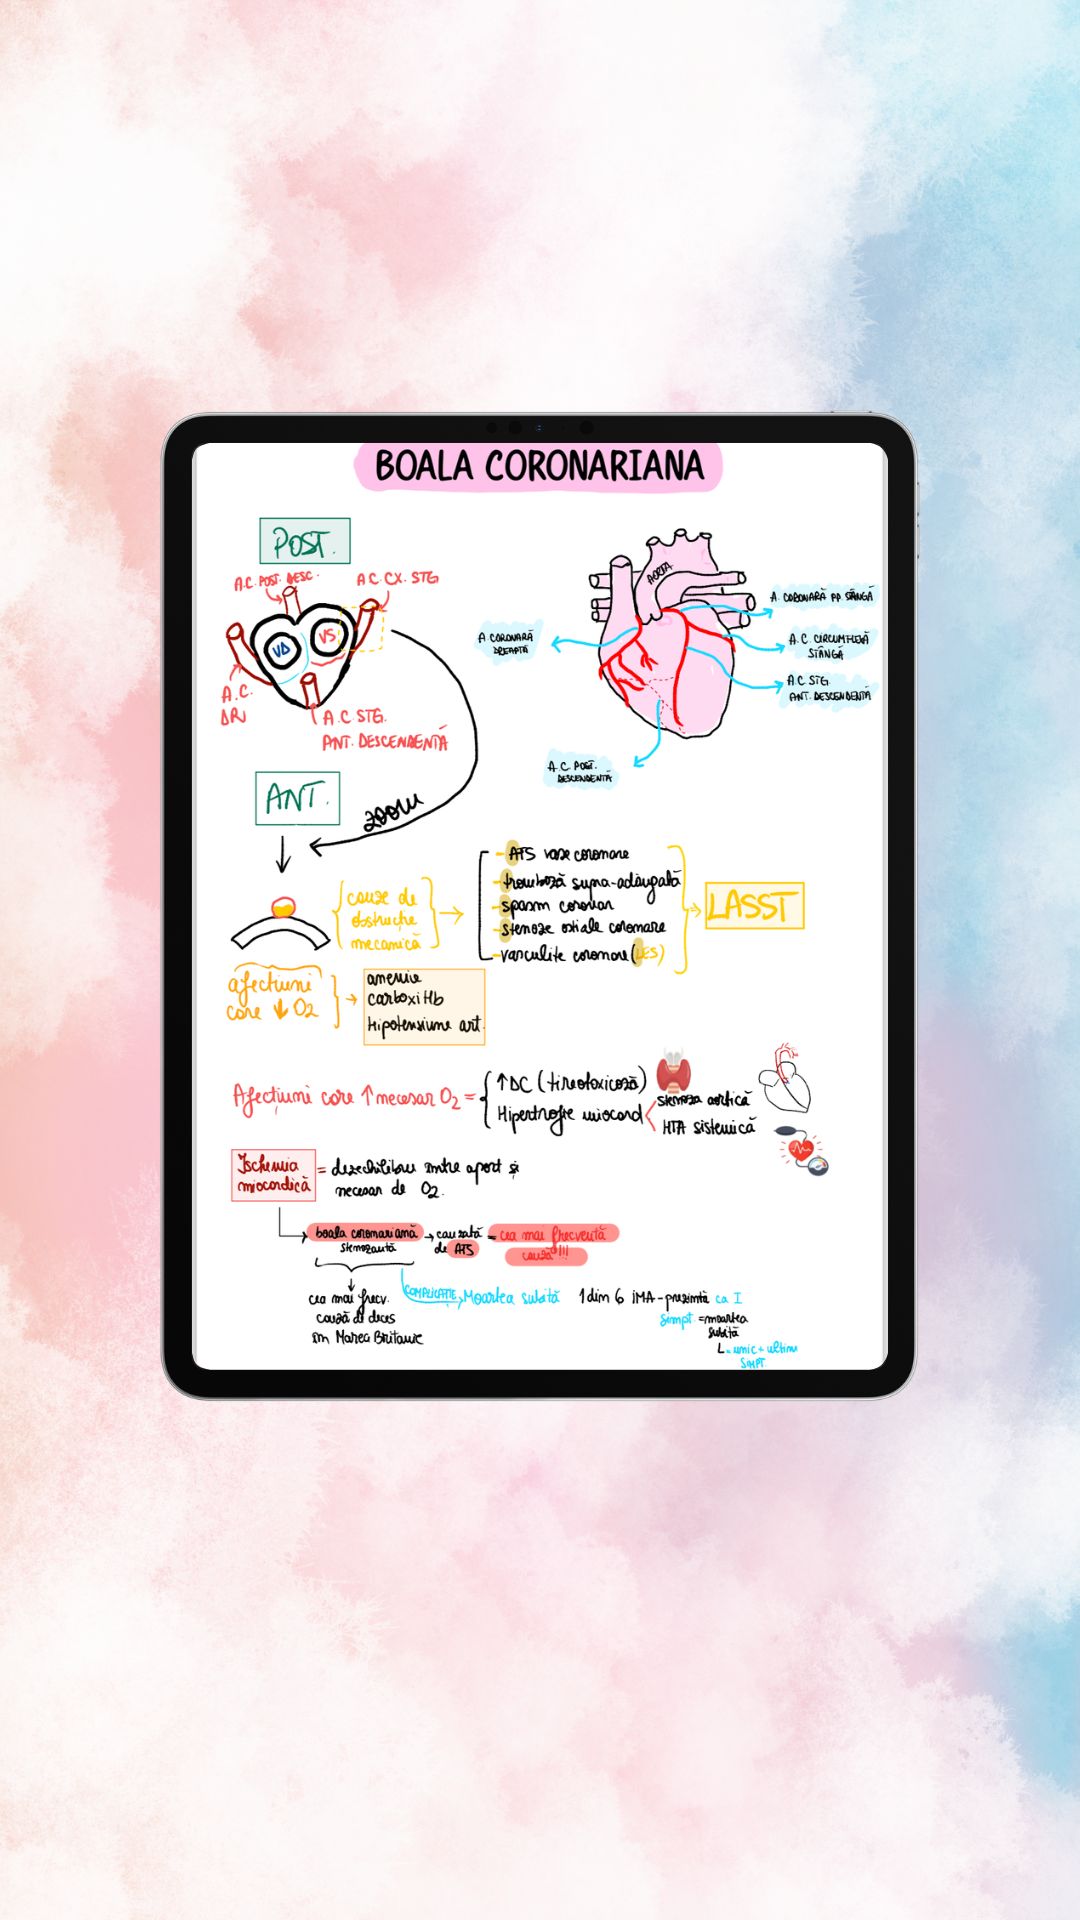 BOALA CORONARIANA
POST.
A.C. POST. DESC.
A.C. CX. STG
VD
VS
A.C.
DR
A.C STG.
ANT. DESCENDENTĂ
ANT.
ZOOM
AORTA
A. CORONARĂ PP. STÂNGĂ
A. CORONARĂ
DREAPTĂ
A.C. CIRCUMFLEXĂ
STÂNGĂ
A.C STG.
ANT. DESCENDENTĂ
A.C. POST.
DESCENDENTĂ
cauze de
obstrucție
mecanică
- ATS vase coronare
- tromboză supra-adăugată
- spasm coronar
- stenoze ostiale coronare
- vasculite coronare (LES)
LASST
afecțiuni
care ↓ O2
anemie
carboxiHb
Hipotensiune art.
Afecțiuni care ↑ necesar O2 =
↑ DC (tireotoxicoză)
Hipertrofie miocard
stenoza aortică
HTA sistemică
Ischemia
miocardică
= dezechilibru între aport și
necesar de O2.
boala coronariană
stenozantă
→ cauzată
de ATS
= cea mai frecventă
cauză!!!
cea mai frecv.
cauză de deces
în Marea Britanie
COMPLICAȚIE
Moartea subită
1 din 6 IMA - prezintă ca I
simpt. = moartea
subită
L = unic + ultim
SIMPT.